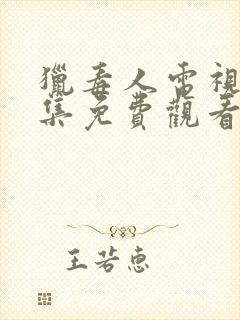 獵毒人電視
集免費觀看
王若惠